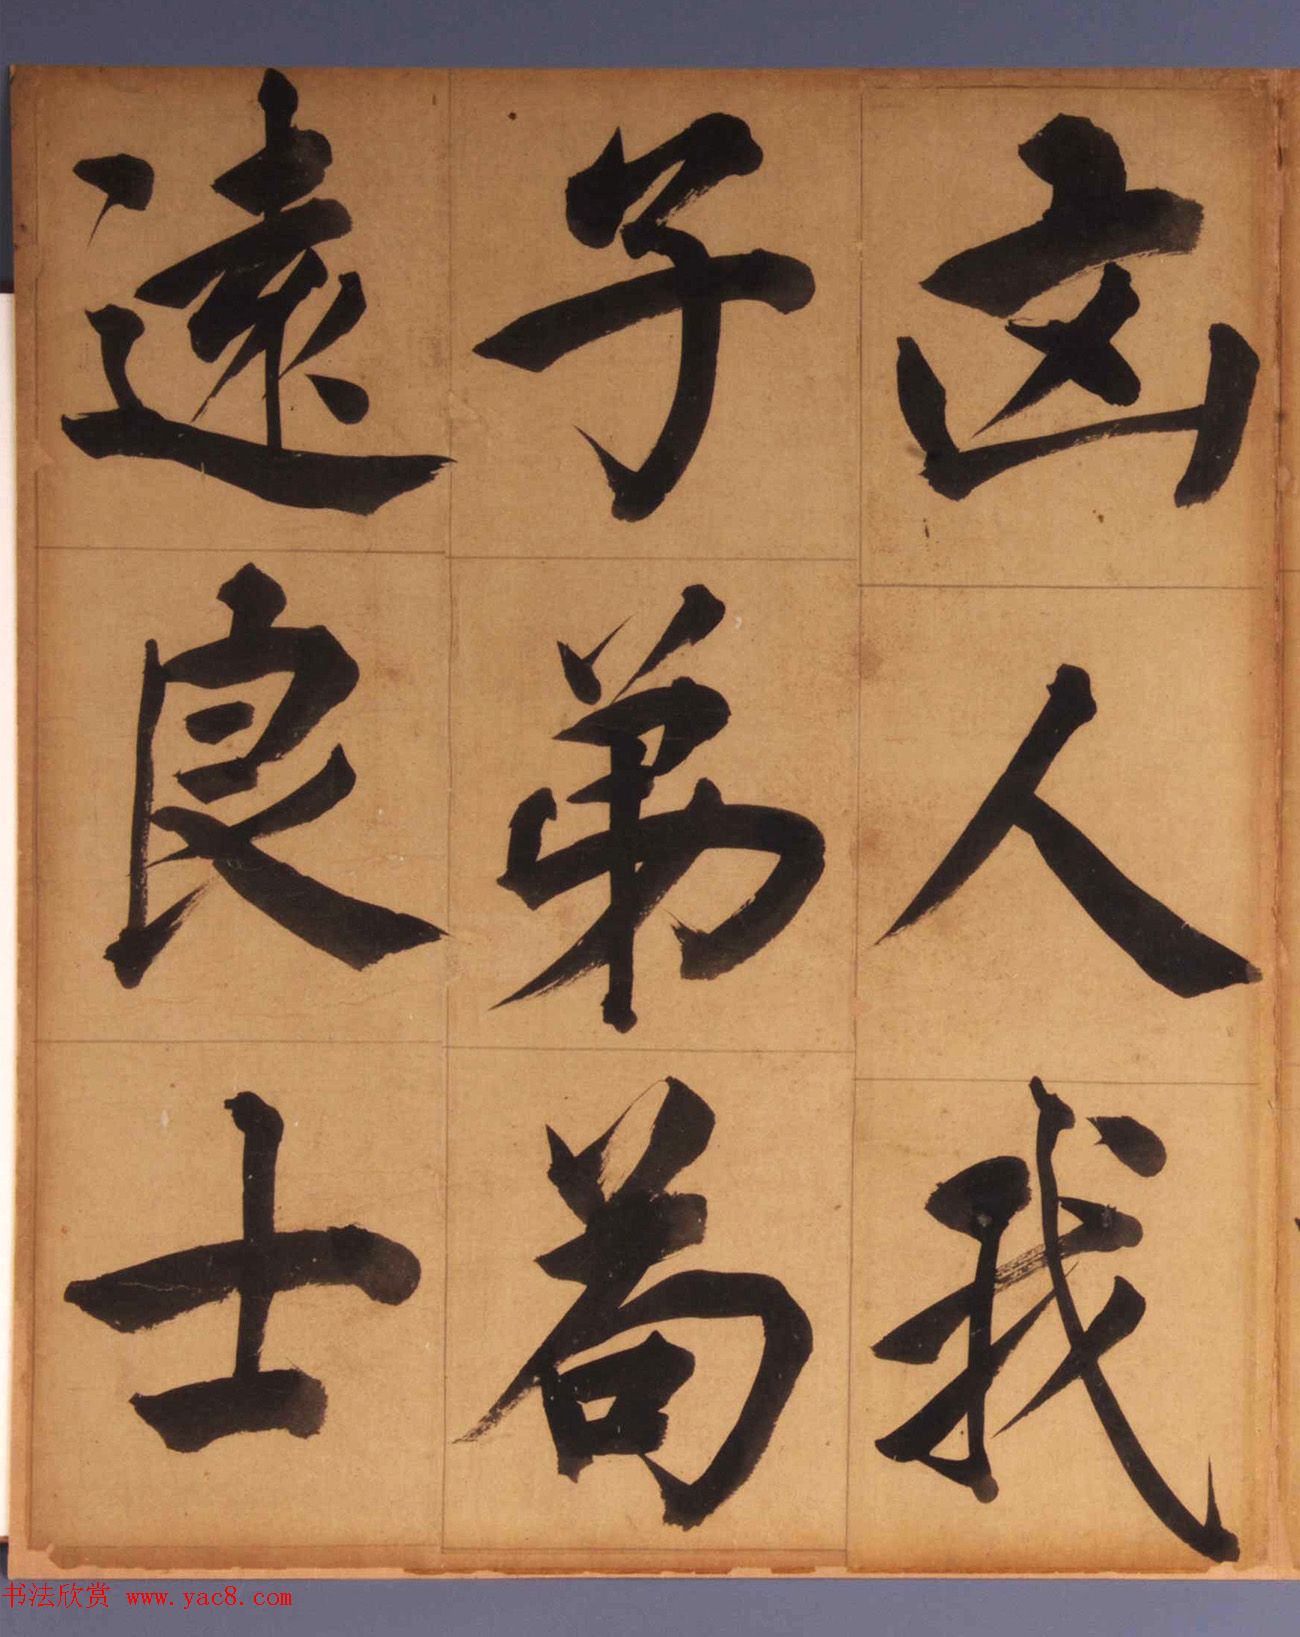 凶人我
子弟苟
遠良士
书法欣赏 www.yac8.com